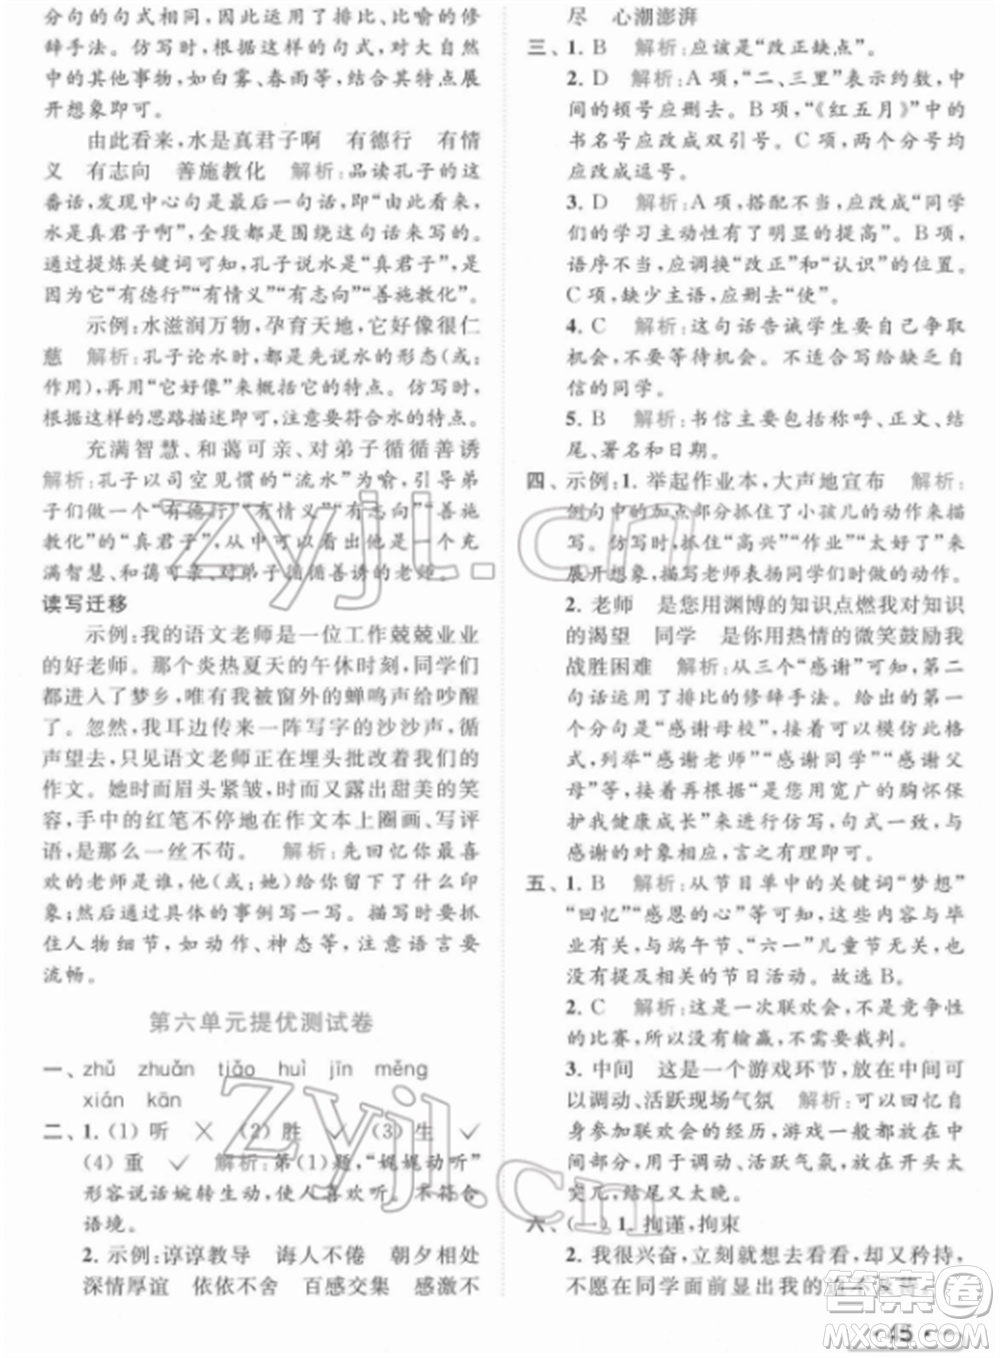 分句的句式相同，并且运用了排比、比喻的修
辞手法。仿写时，根据文中的句式，或对大海中
的其他事物，如白雾、春雨等，结合其特点展
开想象即可。
由此看来，水是真君子啊　有德行　有情
义　有志向　善施教化　解析：品读孔子的这
番话，发现中心句是第一句话，即“由此看来，
水是真君子啊”，这段都是围绕这句话来写的。
通过提炼关键词可知，孔子说水是“真君子”，是
因为它“有德行”“有情义”“有志向”“善施教化”。
示例：水滋润万物，孕育天地，它好像很仁
慈　解析：孔子论水时，都是先说水的形态（或：
作用），再用“它好像”来概括它的特点。仿写时，
根据这样的思路描述即可，注意要符合水的特点。
充满智慧、和蔼可亲、对弟子循循善诱
解析：孔子以司空见惯的“流水”为例，告诉弟
子们做一个“有德行”“有情义”“有志向”“善施
教化”的“真君子”，从中可以看出他是一个充
满智慧、和蔼可亲、对弟子循循善诱的老师。
读写迁移
示例：我的语文老师是一位工作兢兢业业
的好老师。那个炎热夏天的午休时刻，同学们
都进入了梦乡，唯有我被窗外的蝉鸣声吵醒
了。忽然，我耳边传来一阵写字的沙沙声，循
声望去，只见语文老师正在埋头批改着我们的
作文。她时而眉头紧皱，时而又露出甜美的笑
容，手中的红笔不停地在作文本上圈画、写评
语，是那么一丝不苟。　解析：先回忆你最喜
欢的老师是谁，他（或：她）给你留下了什么印
象；然后通过具体的事例写一写。写时要抓
住人物细节，如动作、神态等，注意语言要
流畅。
第六单元提优测试卷
一、zhǔ　zhuǎn　tiǎo　huì　jīn　měng
xián　kān
二、1.（1）听　×　（2）胜　✓　（3）生　✓
（4）重　✓　解析：第（1）题，“娓娓动听”
形容说话婉转生动，使人喜欢听。不符合
语境。
2. 示例：谆谆教导　诲人不倦　朝夕相处
深情厚谊　依依不舍　百感交集　感激不
尽　心潮澎湃
三、1. B　解析：应该是“改正缺点”。
2. D　解析：A 项，“二、三里”表示约数，中
间的顿号应删去。B 项，“《红五月》”中的
书名号应改成双引号。C 项，两个分号应
改成逗号。
3. D　解析：A 项，搭配不当，应改成“同学
们的学习主动性有了明显的提高”。B 项，
语序不当，应调换“改正”和“认识”的位置。
C 项，缺少主语，应删去“使”。
4. C　解析：这句话告诫学生要自己争取
机会，不要等待机会。不适合写给缺乏自
信的同学。
5. B　解析：书信主要包括称呼、正文、结
尾、署名和日期。
四、示例：1. 举起作业本，大声地宣布　解析：
例句中的加点部分抓住了小孩儿的动作来描
写。仿写时，抓住“高兴”“作业”“太好了”
展开想象，描写老师表扬同学们时做的动作。
2. 老师　是您用渊博的知识点燃我对知识
的渴望　同学　是你用热情的微笑鼓励我
战胜困难　解析：从三个“感谢”可知，第二
句话运用了排比的修辞手法。给出的第一
个分句是“感谢母校”，接着可以仿照此格
式，列举“感谢老师”“感谢同学”“感谢父
母”等；接着根据“是您用宽广的胸怀保
护我健康成长”进行仿写，句式一致，并与
感谢的对象相应，言之有理即可。
五、1. B　解析：从节目单中的关键词“梦想”
“回忆”“感恩的心”等可知，这些内容与毕
业有关，与端午节、“六一”儿童节无关，也
没有提及相关的节日活动。故选 B。
2. C　解析：这是一次联欢会，而不是一
场比赛，没有输赢，不需要裁判。
3. 中间　这是一个游戏环节，放在中间用
于调动、活跃现场气氛　解析：可以根据自
身参加联欢会的经历，游戏一般都放在
中间部分，用于调动、活跃气氛，放在开头太
突兀，结尾又太晚。
六、（一）1. 拘谨，拘束
2. 我很兴奋，立刻就想去看看，却又矜持，
不愿在同学面前显出我的
· 45 ·
zyjl.cn
Zyjl.cn
答案卷
MXQE.COM